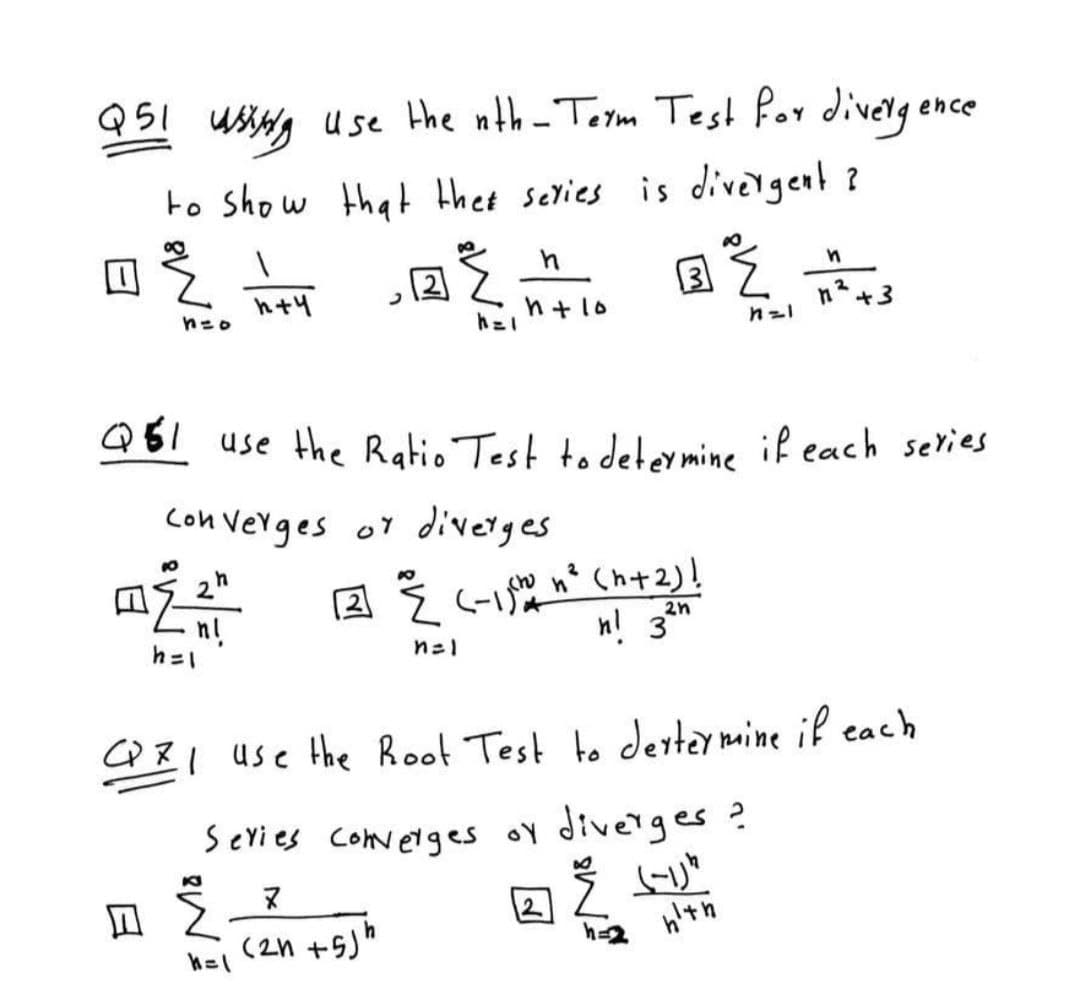 Q5/ use the nth-Term Test for divergence
to show that thet series is divergent?
[1] ∞ Σ n=0 1/(n+4) , [2] ∞ Σ n=1 n/(n+10) [3] ∞ Σ n=1 n/(n²+3)
Q6/ use the Ratio Test to determine if each series
converges or diverges
[1] ∞ Σ n=1 2ⁿ/n! [2] ∞ Σ n=1 (-1)⁽ⁿ⁾ n² (n+2)!/(n! 3²ⁿ)
Q7/ use the Root Test to dertermine if each
Series converges or diverges?
[1] ∞ Σ n=1 7/(2n+5)ⁿ [2] ∞ Σ n=2 (-1)ⁿ/n¹⁺ⁿ